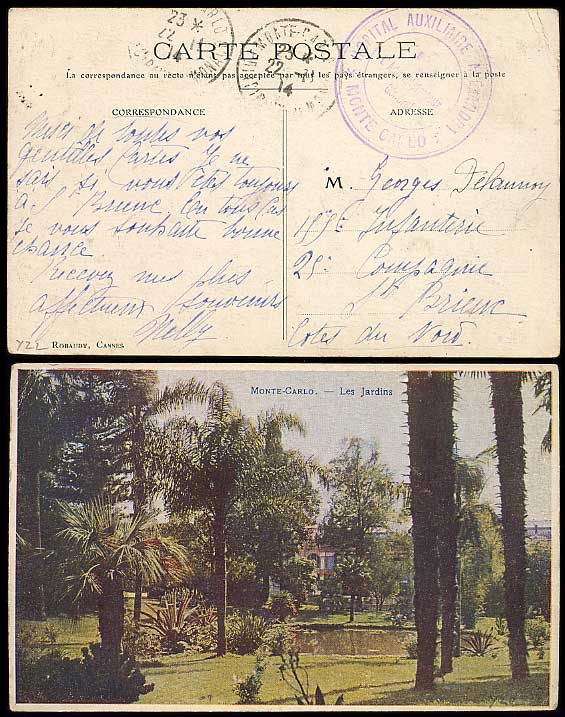 CARTE POSTALE
La correspondance au recto n'étant pas acceptée par tous les pays étrangers, se renseigner à la poste
CORRESPONDANCE
ADRESSE
23 *
22
14
23
22
14
HOPITAL AUXILIAIRE
MONTE CARLO
Merci de toutes vos
gentilles Cartes Je ne
sais si vous êtes toujours
à St Brieuc. En tous cas
Je vous souhaite bonne
chance.
Recevez mes plus
affectueux souvenirs
Nelly
M. Georges Delaunoy
Infanterie
25e Compagnie
St Brieuc
Cotes du Nord.
722 ROBAUDY, CANNES
MONTE-CARLO. — Les Jardins